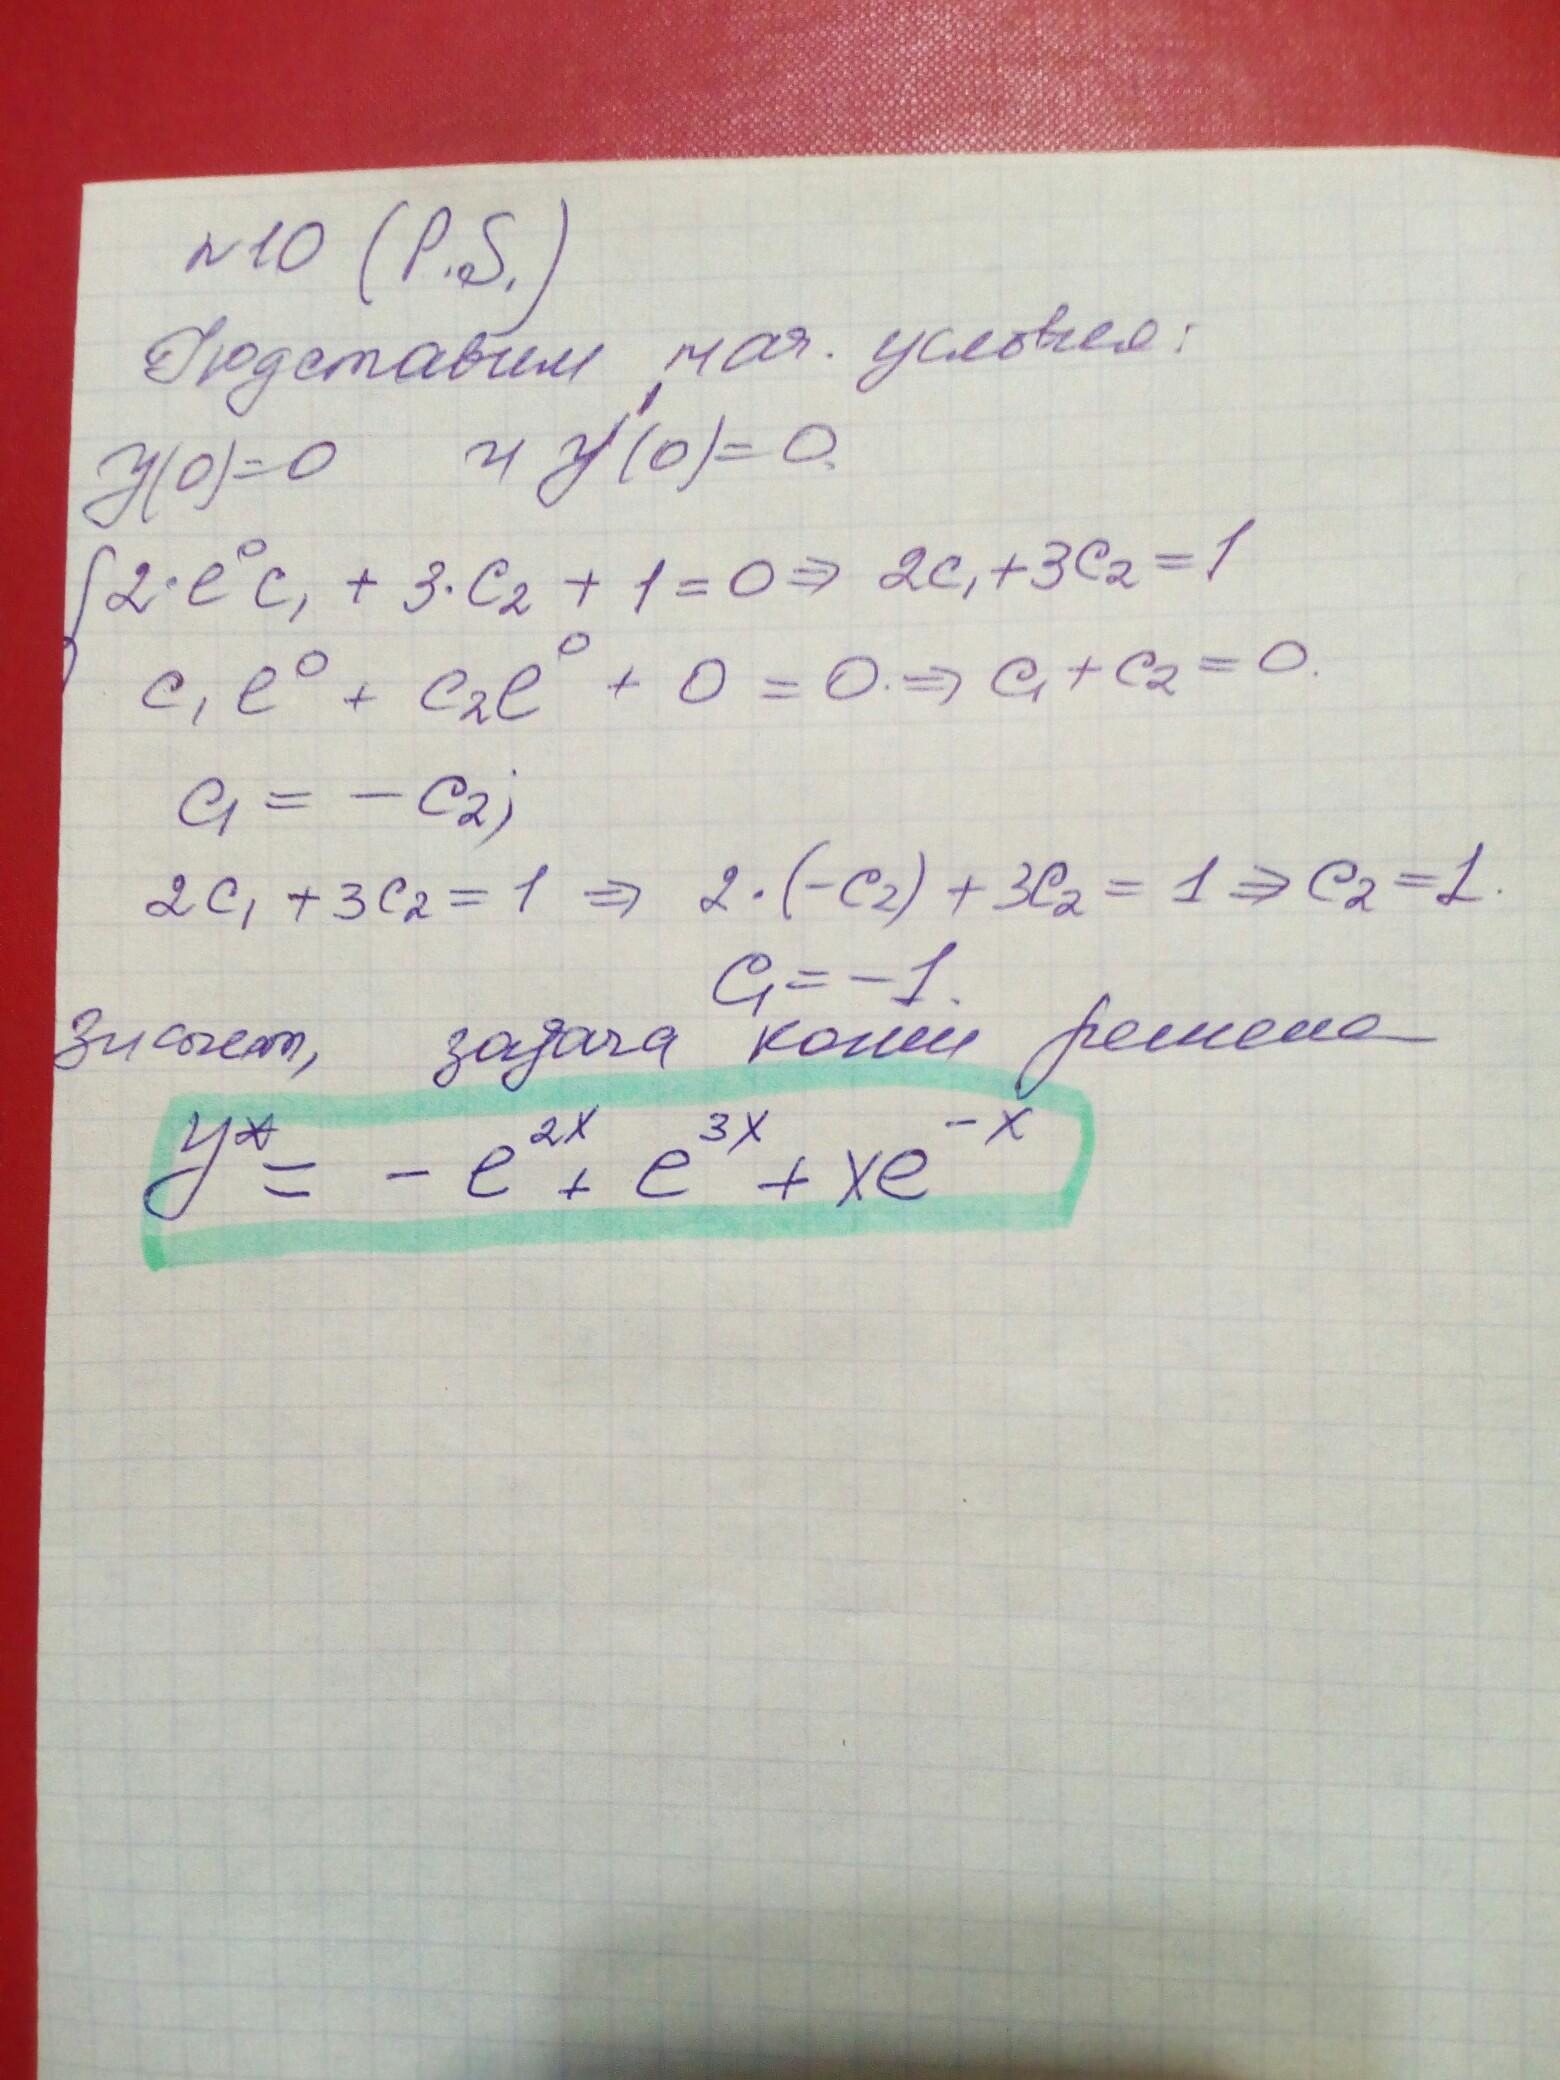 №10 (P.S.)
Подставим нач. условия:
y(0)=0 и y'(0)=0.
{2·e⁰c₁ + 3·c₂ + 1 = 0 ⇒ 2c₁+3c₂=1
c₁e⁰ + c₂e⁰ + 0 = 0. ⇒ c₁+c₂=0.
c₁ = -c₂;
2c₁+3c₂=1 ⇒ 2·(-c₂)+3c₂=1 ⇒ c₂=1.
c₁=-1.
задача коши решена
y*= -e²ˣ + e³ˣ + xe⁻ˣ